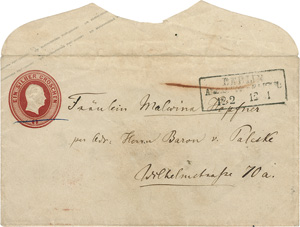 EIN SILBER GROSCHEN
BERLIN
18 2 12 1
Fräulein Malwina Höpfner
per adr. Herrn Baron v. Paleske
Wilhelmstraße 70a.